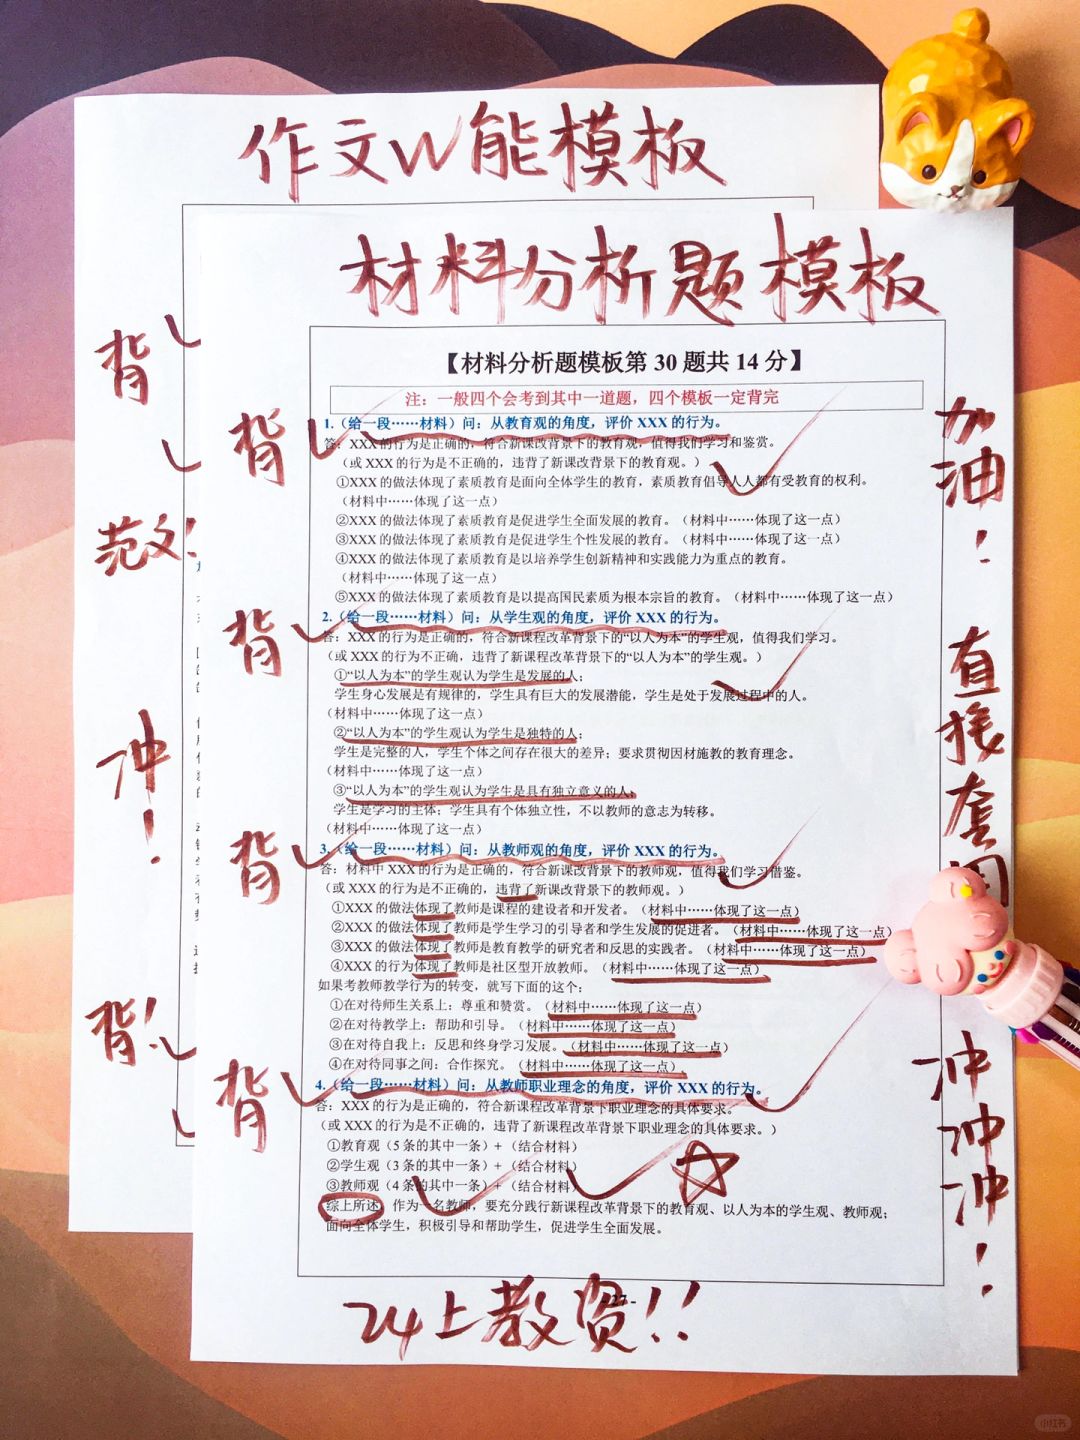 作文W能模板
材料分析题模板
【材料分析题模板第 30 题共 14 分】
注：一般四个会考到其中一道题，四个模板一定背完
1.（给一段……材料）问：从教育观的角度，评价 XXX 的行为。
答：XXX 的行为是正确的，符合新课改背景下的教育观，值得我们学习和鉴赏。
（或 XXX 的行为是不正确的，违背了新课改背景下的教育观。）
①XXX 的做法体现了素质教育是面向全体学生的教育，素质教育倡导人人都有受教育的权利。
（材料中……体现了这一点）
②XXX 的做法体现了素质教育是促进学生全面发展的教育。（材料中……体现了这一点）
③XXX 的做法体现了素质教育是促进学生个性发展的教育。（材料中……体现了这一点）
④XXX 的做法体现了素质教育是以培养学生创新精神和实践能力为重点的教育。
（材料中……体现了这一点）
⑤XXX 的做法体现了素质教育是以提高国民素质为根本宗旨的教育。（材料中……体现了这一点）
2.（给一段……材料）问：从学生观的角度，评价 XXX 的行为。
答：XXX 的行为是正确的，符合新课程改革背景下的“以人为本”的学生观，值得我们学习。
（或 XXX 的行为不正确，违背了新课程改革背景下的“以人为本”的学生观。）
①“以人为本”的学生观认为学生是发展的人；
学生身心发展是有规律的，学生具有巨大的发展潜能，学生是处于发展过程中的人。
（材料中……体现了这一点）
②“以人为本”的学生观认为学生是独特的人；
学生是完整的人，学生个体之间存在很大的差异；要求贯彻因材施教的教育理念。
（材料中……体现了这一点）
③“以人为本”的学生观认为学生是具有独立意义的人；
学生是学习的主体；学生具有个体独立性，不以教师的意志为转移。
（材料中……体现了这一点）
3.（给一段……材料）问：从教师观的角度，评价 XXX 的行为。
答：材料中 XXX 的行为是正确的，符合新课改背景下的教师观，值得我们学习借鉴。
（或 XXX 的行为是不正确的，违背了新课改背景下的教师观。）
①XXX 的做法体现了教师是课程的建设者和开发者。（材料中……体现了这一点）
②XXX 的做法体现了教师是学生学习的引导者和学生发展的促进者。（材料中……体现了这一点）
③XXX 的做法体现了教师是教育教学的研究者和反思的实践者。（材料中……体现了这一点）
④XXX 的行为体现了教师是社区型开放教师。（材料中……体现了这一点）
如果考教师教学行为的转变，就写下面的这个：
①在对待师生关系上：尊重和赞赏。（材料中……体现了这一点）
②在对待教学上：帮助和引导。（材料中……体现了这一点）
③在对待自我上：反思和终身学习发展。（材料中……体现了这一点）
④在对待同事之间：合作探究。（材料中……体现了这一点）
4.（给一段……材料）问：从教师职业理念的角度，评价 XXX 的行为。
答：XXX 的行为是正确的，符合新课程改革背景下职业理念的具体要求。
（或 XXX 的行为是不正确的，违背了新课程改革背景下职业理念的具体要求。）
①教育观（5 条的其中一条）+（结合材料）
②学生观（3 条的其中一条）+（结合材料）
③教师观（4 条的其中一条）+（结合材料）
综上所述，作为一名教师，要充分践行新课程改革背景下的教育观、以人为本的学生观、教师观；
面向全体学生，积极引导和帮助学生，促进学生全面发展。
24上教资!!
背
范文!
冲!
背!
背
背
背
背
加油!
直接套用
冲冲冲!
小红书